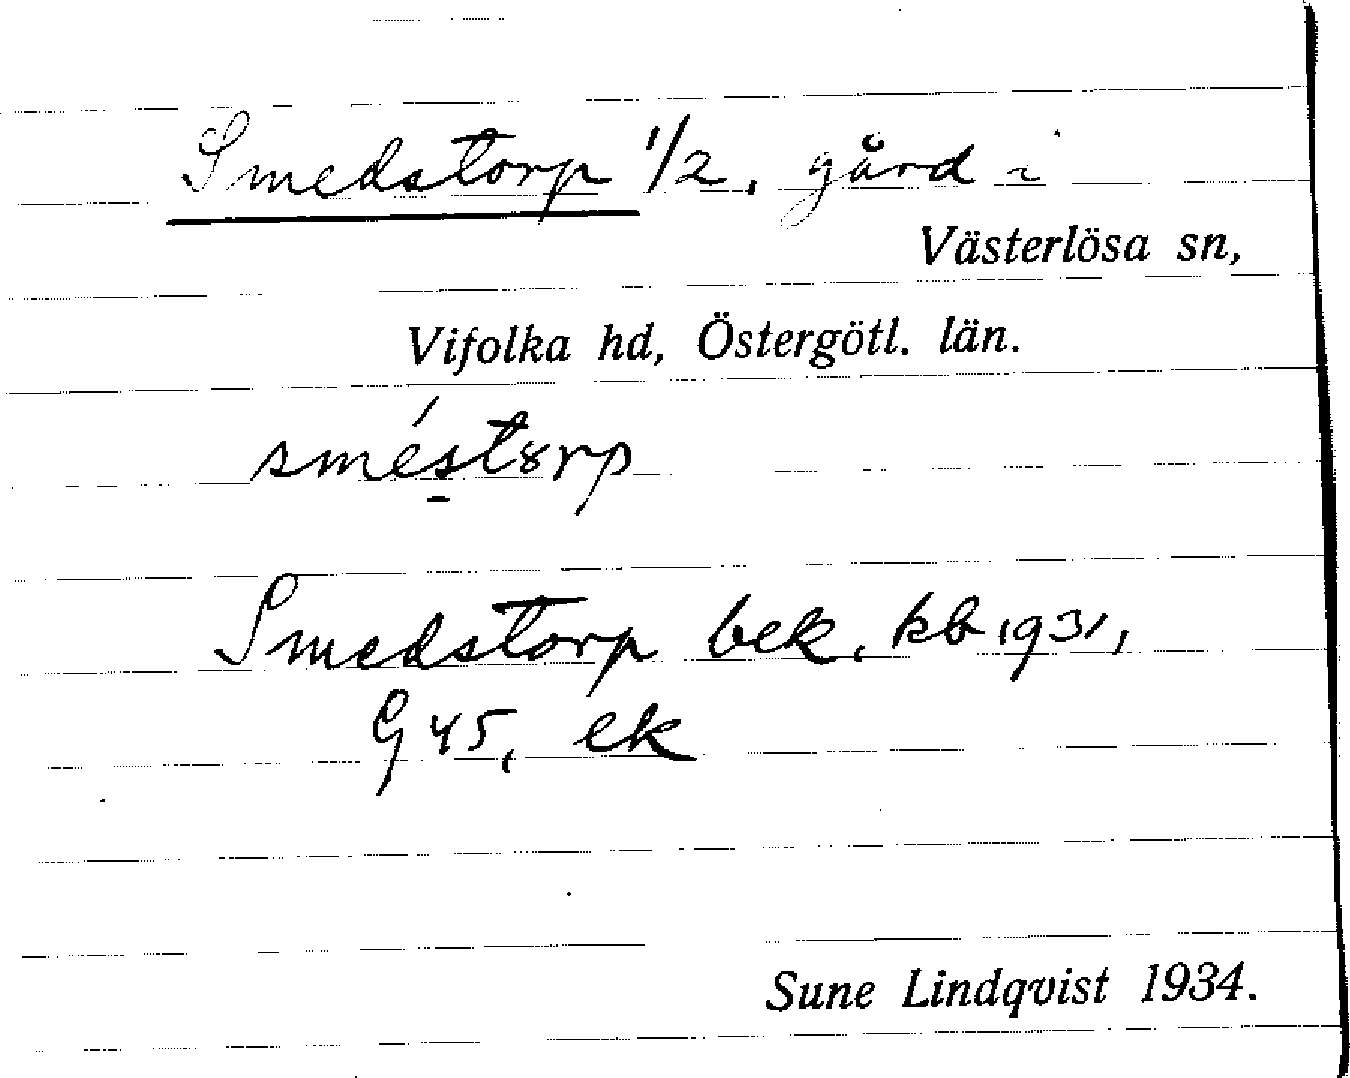 Smedstorp 1/2, gård i
Västerlösa sn,
Vifolka hd, Östergötl. län.
sméstȣrp
Smedstorp bek. kb 1931,
G 45, ek
Sune Lindqvist 1934.